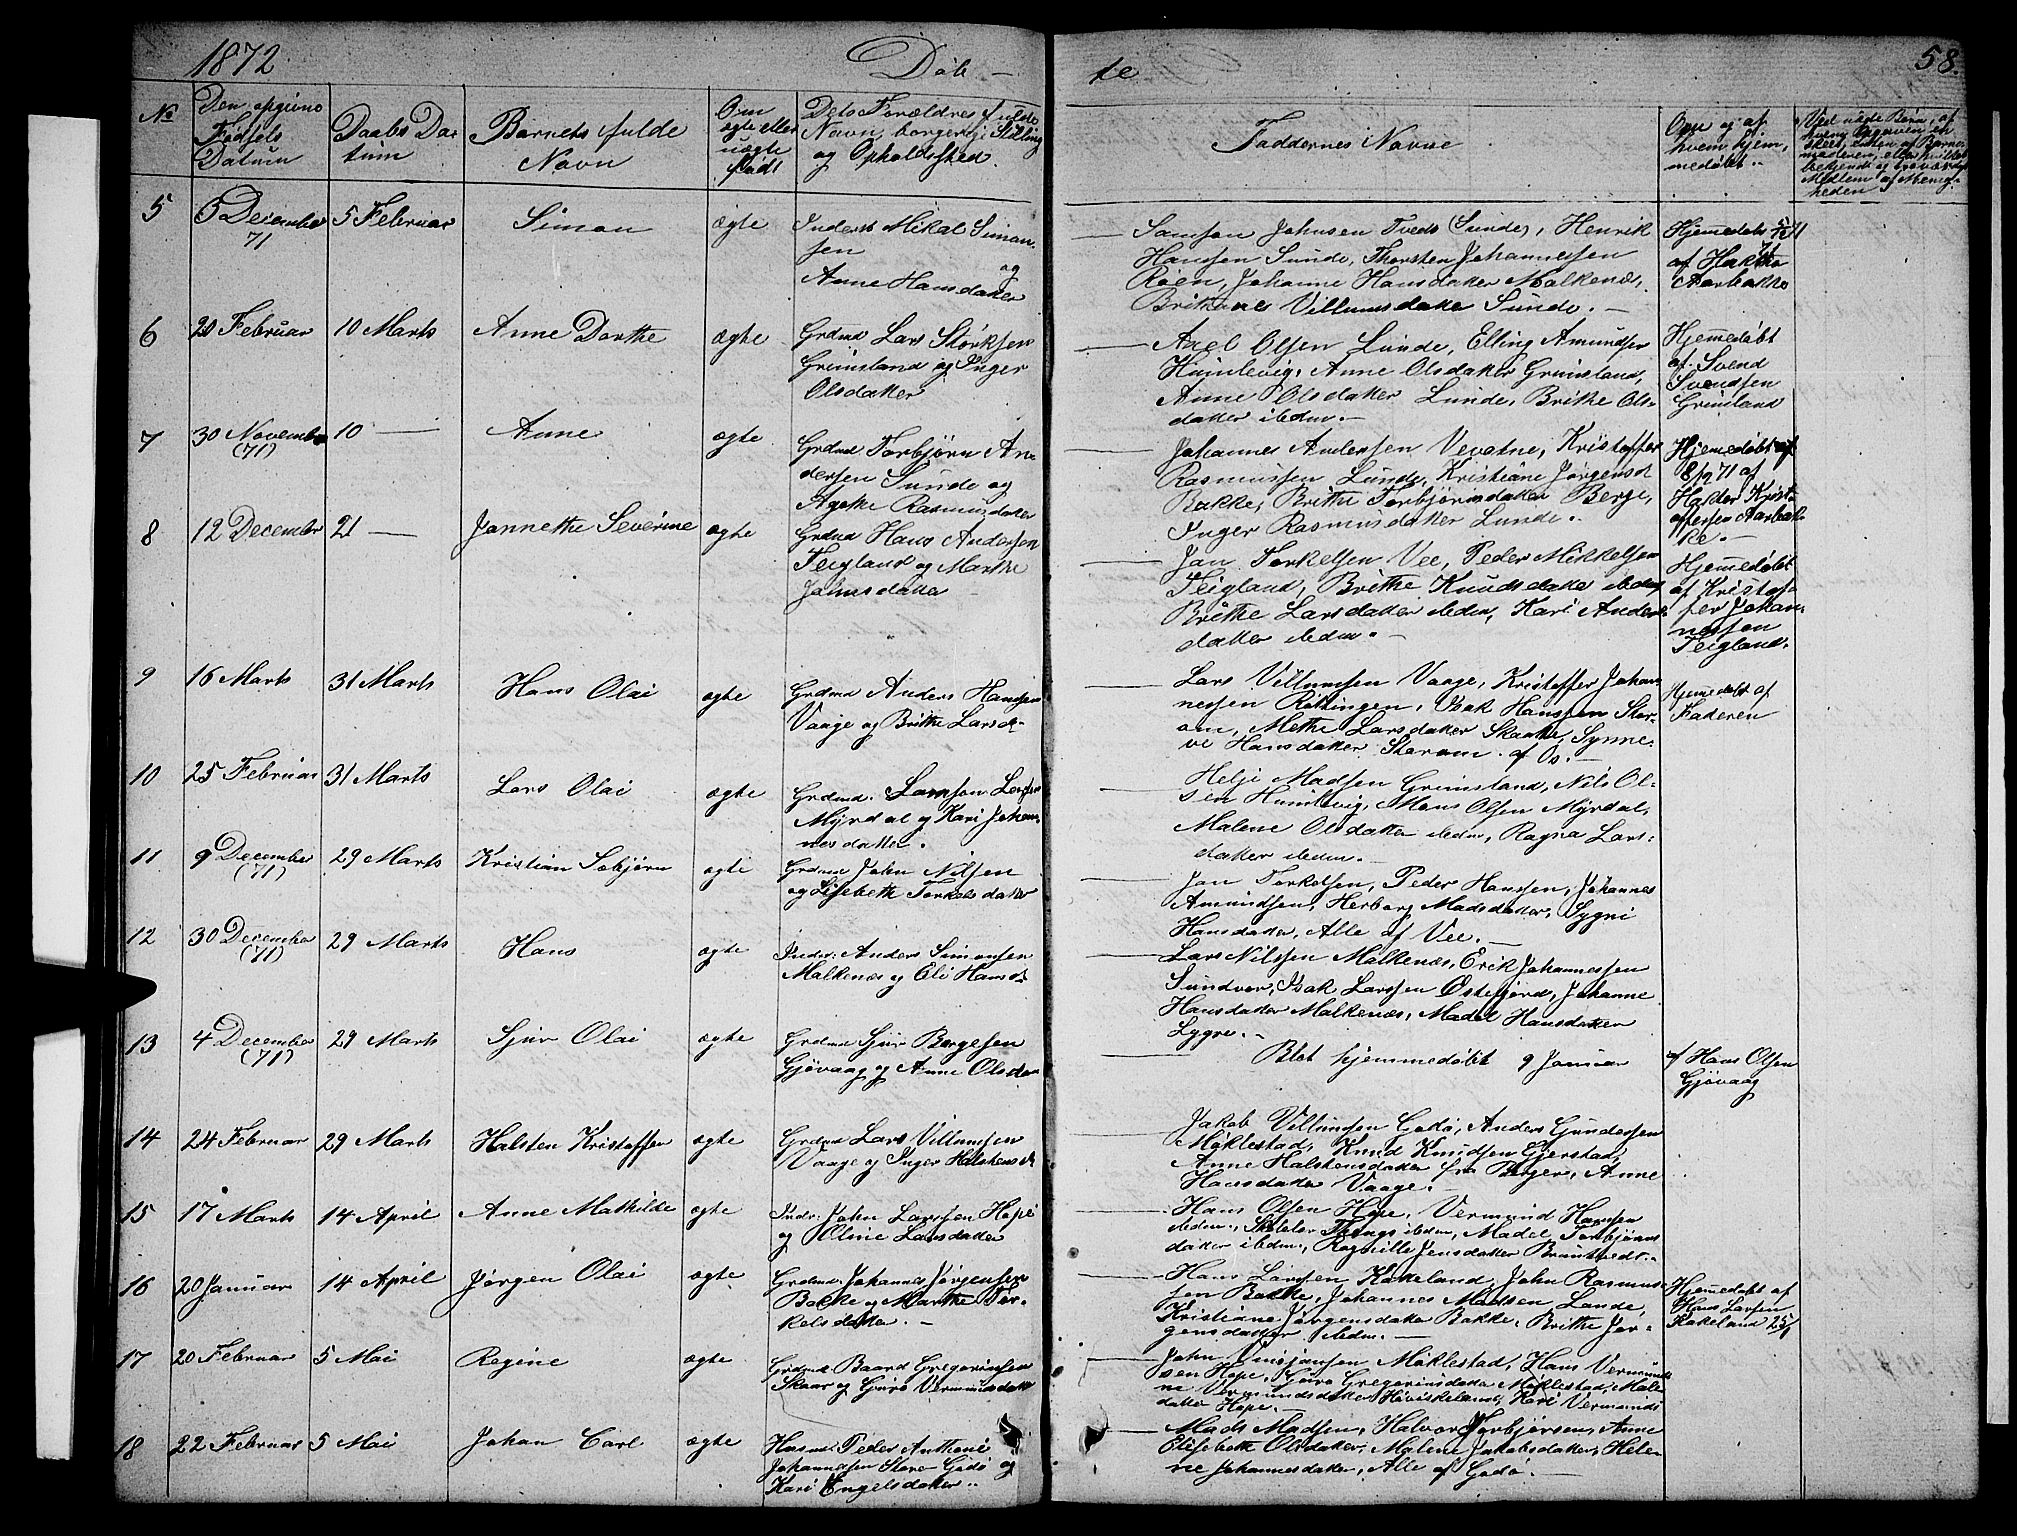 1872
Døb-
te
58.
No
Den opgivne
Fødsels
Datum
Daabs Da-
tum
Barnets fulde
Navn
Om
ægte eller
uægte
født
Dets Forældres fulde
Navn, borgerlig Stilling
og Opholdssted.
Faddernes Navne
Om og af
hvem hjem-
medøbt..
Ved uægte Børn, af
hvem Opgaven er
skeet, enten af Barne-
moderen, eller hvilket
bekjendt og troværdigt
Medlem af Menig-
heden
5
5 December
71
5 Februar
Simon
ægte
Inderst Mikal Simon-
sen
og
Anne Hansdatter
Samson Johnsen Tveds (Sunde), Henrik
Hansen Sunde, Thorsten Johannessen
Røen, Johanne Hansdatter Malkenæs,
Villumsdatter Sunde. –
Hjemmedøbt
af
Aarbakke
6
20 Februar
10 Marts
Anne Dorthe
ægte
Grdmd Lars Størksen
Grimsland og Inger
Olsdatter
Axel Olsen Lunde, Elling Amundsen
Humlevig, Anne Olsdatter Grimsland,
Anne Olsdatter Lunde, Brithe Ols-
datter ibdm. –
Hjemmedøbt
af Svend
Svendsen
Grimsland
7
30 November
(71)
10 —
Anne
ægte
Grdmd Torbjørn An-
dersen Sunde og
Agathe Rasmusdatter
Johannes Andersen Vevatne, Kristoffer
Rasmussen Lunde, Kristiane Jørgensd
Bakke, Brithe Torbjørnsdatter Berge,
Inger Rasmusdatter Lunde..
Hjemmedøbt
8/12 71 af
Haldor Krist-
offersen Aarbak-
ke. –
8
12 December
21 —
Jannette Severine
ægte
Grdmd Hans Andersen
Teigland og Marthe
Johnsdatter
Jan Torkelsen Vee, Peder Mikkelsen
Teigland, Brithe Knudsdatter ibdm,
Brithe Larsdatter ibdm, Kari Anders-
datter ibdm. –
Hjemmedøbt
af Kristof-
fer Johan-
nessen
Teigland.
9
16 Marts
31 Marts
Hans Olai
ægte
Grdmd Anders Hansen
Vaage og Brithe Larsd.
Lars Villumsen Vaage, Kristoffer Johan-
nessen Røttingen, Isak Hanssen Stor-
om, Methe Larsdatter Skaathe, Synne-
ve Hansdatter Storøm. af Os. –
Hjemmedøbt af
Faderen
10
25 Februar
31 Marts
Lars Olai
ægte
Grdmd. Samson Larsen
Myrdal og Kari Johan-
nesdatter.
Helje Madsen Grimsland, Nils Ol-
sen Humlevig, Mons Olsen Myrdal,
Malene Olsdatter ibdm, Ragna Lars-
datter ibdm. –
11
9 December
(71)
29 Marts
Kristian Sebjørn
ægte
Grdmd John Nilsen
og Lisebeth Torkelsdatter
Jan Torkelsen, Peder Hanssen, Johannes
Amundsen, Herborg Madsdatter, Sygni
Hansdatter, Alle af Vee. –
12
30 December
(71)
29 Marts
Hans
ægte
Inder: Anders Simonsen
Malkenæs og Oli Hansd.
Lars Nilssen Malkenæs, Erik Johannessen
Sundvor, Isak Larssen Østefjord, Johanne
Hansdatter Malkenæs, Madel Hansdatter
Lygre. –
13
4 December
(71)
29 Marts
Sjur Olai
ægte
Grdmd Sjur Børgesen
Gjøvaag og Anne Olsdatter
Blot hjemmedøbt 9 Januar
af Hans Olsen
Gjøvaag
14
24 Februar
29 Marts
Halsten Kristoffer
ægte
Grdmd Lars Villumsen
Vaage og Inger Halstensd.
Jakob Villumsen Godø, Anders Gundersen
Møklestad, Knud Knudsen Gjerstad,
Anne Halstensdatter fra Bergen, Anne
Hansdatter Vaage. –
15
17 Marts
14 April
Anne Mathilde
ægte
Indr. John Larssen Hope
og Oline Larsdatter
Hans Olsen Hope, Vermund Hansen
ibdm., ibdm, Madel Torbjørns
datter ibdm., Ragnille Jensdatter Bruntvedt. –
16
20 Januar
14 April
Jørgen Olai
ægte
Grdmd. Johannes Jørgensen
Bakke og Marthe Tor-
kelsdatter. –
Hans Larssen Kakeland, John Rasmus-
sen Bakke, Johannes Madsen Lunde,
Kristiane Jørgensdatter Bakke, Brithe Jør-
gensdatter ibdm. –
Hjemmedøbt af
Hans Larsen
Kakeland 25/1
17
20 Februar
5 Mai
Regine
ægte
Grdmd Baard Gregoriussen
Skaar og Guro Vermundsdatter
John Vinsjansen Møklestad, Hans Vermund-
sen Hope, Guro Gregoriusdatter Møklestad, Male-
ne Vermundsdatter Høviskeland, Kari Vermunds
datter Hope. –
18
22 Februar
5 Mai
Johan Carl
ægte
Husmd. Peder Anthoni
Johannessen Store Godø og
Kari Engelsdatter..
Mads Madsen, Halvor Torbjørsen, Anne
Elisebeth Olsdatter, Malene Jakobsdatter, Hele-
ne Johannesdatter, Alle af Godø. –